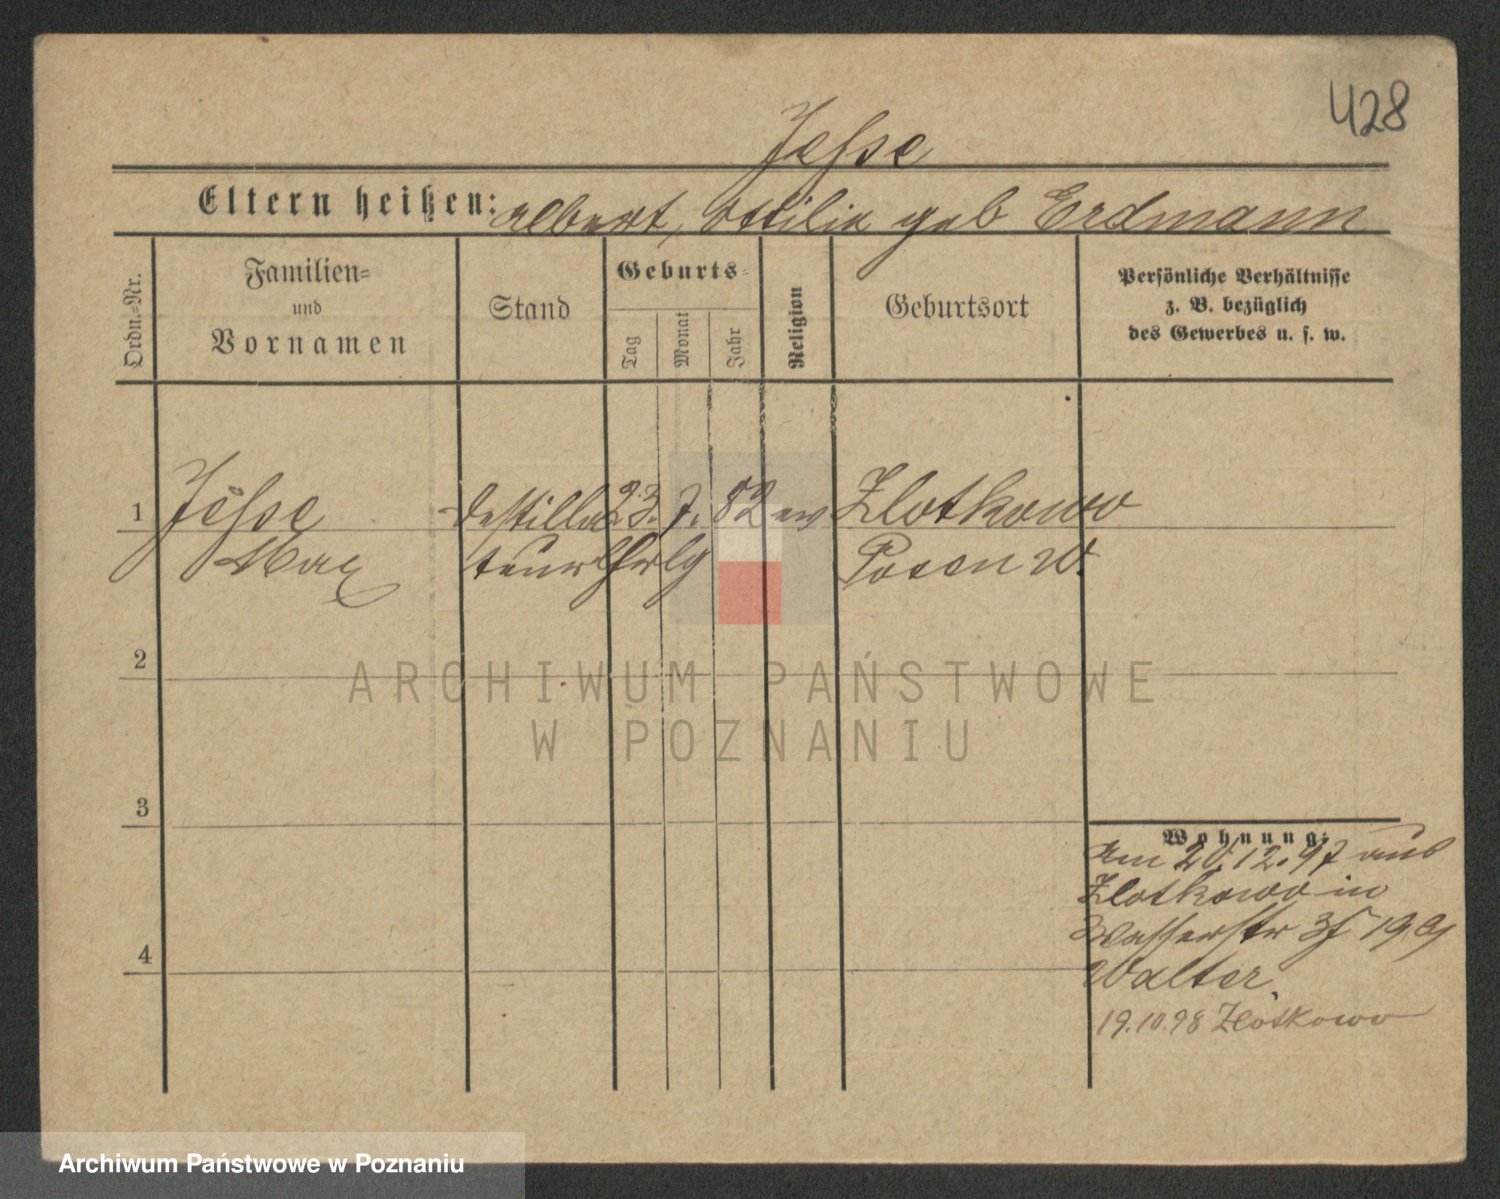 428
Jesse
Eltern heißen: Albert, Ottilie geb Erdmann
Ordn.-Nr.
Familien-
und
Vornamen
Stand
Geburts-
Tag
Monat
Jahr
Religion
Geburtsort
Persönliche Verhältnisse
z. B. bezüglich
des Gewerbes u. s. w.
1 Jesse Destilla 23. 7. 82 ev Zlotkowo
Max teurlhrlg Posen W.
2
ARCHIWUM PAŃSTWOWE
W POZNANIU
3
Wohnung:
Am 20.12.97 aus
Zlotkowo in
Wasserstr
4
Walter
19.10.98 Zlotkowo
Archiwum Państwowe w Poznaniu